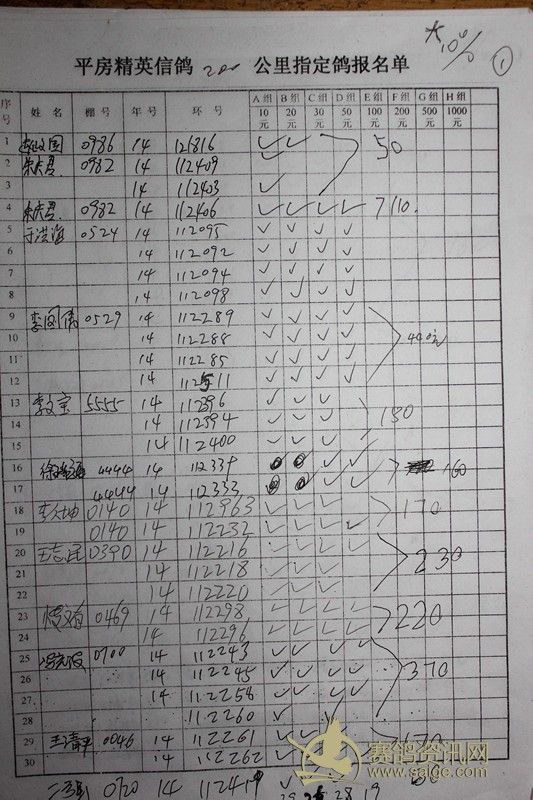 大10%
①
平房精英信鸽 200 公里指定鸽报名单
序号 姓名 棚号 年号 环号 A组10元 B组20元 C组30元 D组50元 E组100元 F组200元 G组500元 H组1000元
1 0986 14 121816 ✓ ✓ 50
2 0982 14 112409 ✓
3 14 112403 ✓
4 0982 14 112406 ✓ ✓ ✓ ✓ 110.
5 于洪海 0524 14 112095 ✓ ✓ ✓ ✓
6 14 112092 ✓ ✓ ✓ ✓
7 14 112094 ✓ ✓ ✓ ✓
8 14 112098 ✓ ✓ ✓ ✓
9 0529 14 112289 ✓ ✓ ✓ ✓
10 14 112288 ✓ ✓ ✓ ✓ 440元
11 14 112285 ✓ ✓ ✓ ✓
12 14 112511 ✓ ✓ ✓ ✓
13 李文宝 5555 14 112396 ✓ ✓ ✓
14 14 112394 ✓ ✓ ✓ 180
15 14 112400 ✓ ✓ ✓
16 4444 14 112339 ✓ ✓ 160
17 4444 14 112333 ✓ ✓
18 0140 14 112963 ✓ ✓ ✓ 170
19 0140 14 112232 ✓ ✓ ✓ ✓
20 王志民 0390 14 112216 ✓ ✓ ✓ ✓
21 14 112218 ✓ ✓ ✓ 230
22 14 112220 ✓ ✓ ✓
23 0469 14 112298 ✓ ✓ ✓ ✓ 220
24 14 112296 ✓ ✓ ✓ ✓
25 0700 14 112243 ✓ ✓ ✓ ✓
26 14 112245 ✓ ✓ ✓ ✓ 370
27 14 112258 ✓ ✓ ✓ ✓
28 112260 ✓ ✓
29 王清平 0046 14 112261 ✓ ✓ ✓ 170
30 14 112262 ✓ ✓ ✓
0720 14 112419 ✓
28 19
赛鸽资讯网
www.saige.com